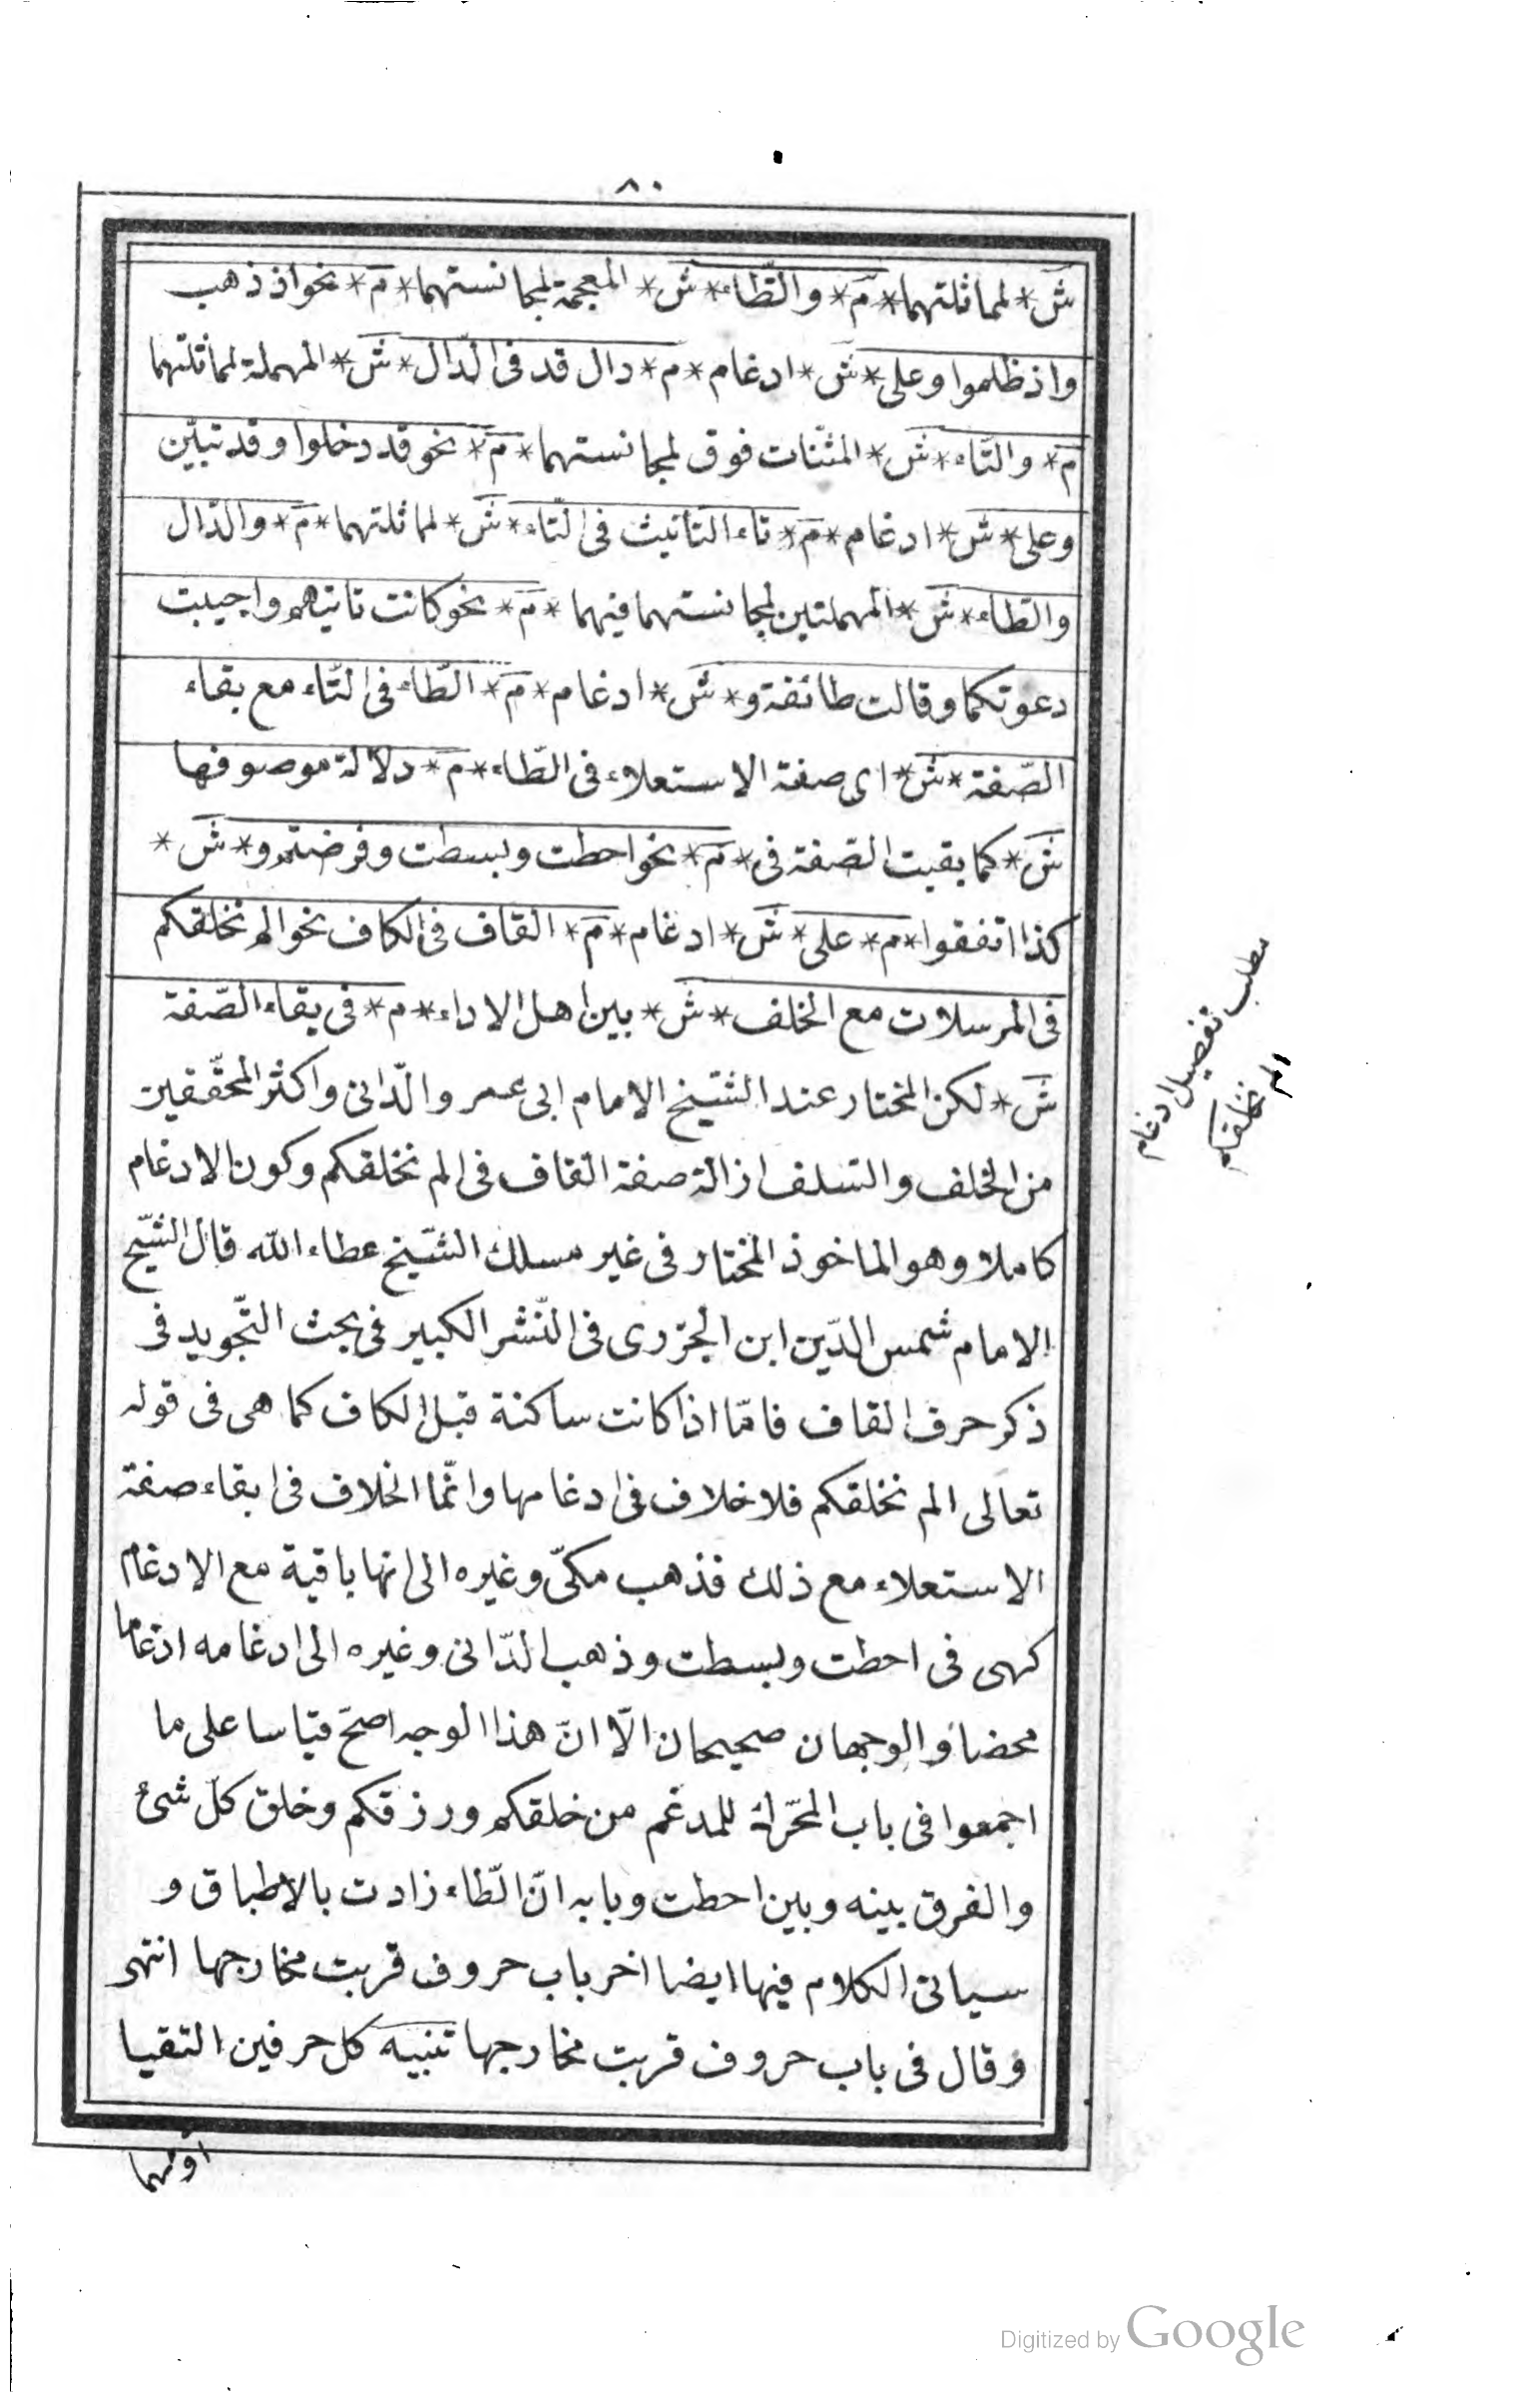 ٨٠
ش * لمماثلتهما * م * والظّاء * ش * المعجمة لمجانستهما * م * نحو اذ ذهب
واذ ظلموا وعلى * ش * ادغام * م * دال قد فى الدّال * ش * المهملة لمماثلتهما
م * والتّاء * ش * المثنّات فوق لمجانستهما * م * نحو قد دخلوا وقد تبيّن
وعلى * ش * ادغام * م * تاء التأنيث فى التّاء * ش * لمماثلتهما * م * والدّال
والطّاء * ش * المهملتين لمجانستهما فيهما * م * نحو كانت تاتيهم واجيبت
دعوتكما وقالت طائفة و * ش * ادغام * م * الطّاء فى التّاء مع بقاء
الصّفة * ش * اى صفة الاستعلاء فى الطّاء * م * دلالة موصوفها
ش * كما بقيت الصّفة فى * م * نحو احطت وبسطت وفرضتم و * ش *
كذا اتفقوا * م * على * ش * ادغام * م * القاف فى الكاف نحو الم نخلقكم
فى المرسلات مع الخلف * ش * بين اهل الاداء * م * فى بقاء الصّفة
ش * لكن المختار عند الشّيخ الامام ابى عمر والدّانى واكثر المحقّقين
من الخلف والسّلف ازالة صفة القاف فى الم نخلقكم وكون الادغام
كاملا وهو الماخوذ المختار فى غير مسلك الشّيخ عطاء الله قال الشّيخ
الامام شمس الدّين ابن الجزرى فى النّشر الكبير فى بحث التّجويد فى
ذكر حرف القاف فامّا اذا كانت ساكنة قبل الكاف كما هى فى قوله
تعالى الم نخلقكم فلا خلاف فى ادغامها وانّما الخلاف فى ابقاء صفة
الاستعلاء مع ذلك فذهب مكىّ وغيره الى انها باقية مع الادغام
كهى فى احطت وبسطت وذهب الدّانى وغيره الى ادغامه ادغاما
محضا والوجهان صحيحان الّا انّ هذا الوجه اصحّ قياسا على ما
اجمعوا فى باب المحرّك للمدغم من خلقكم ورزقكم وخلق كلّ شئ
والفرق بينه وبين احطت وبابه انّ الطّاء زادت بالاطباق و
سياتى الكلام فيها ايضا اخر باب حروف قربت مخارجها انتهى
وقال فى باب حروف قربت مخارجها تنبيه كل حرفين التقيا
اولهما
مطلب تفصيل ادغام
الم نخلقكم
Digitized by Google